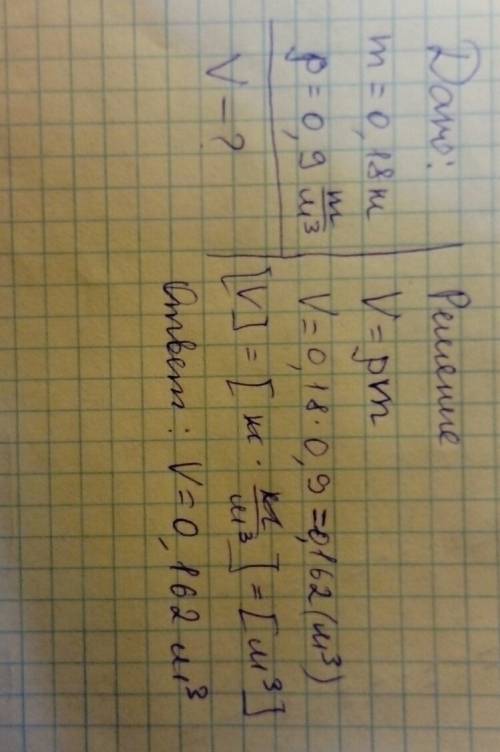 Дано:
m = 0,18т
ρ = 0,9 т/м³
V - ?
Решение
V = ρm
V = 0,18 · 0,9 = 0,162 (м³)
[V] = [т · т/м³] = [м³]
Ответ: V = 0,162 м³